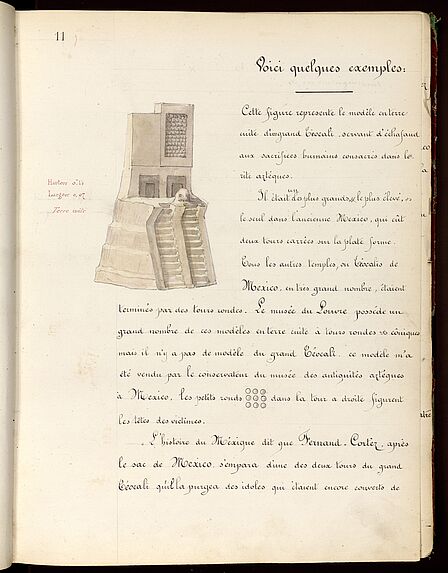 11
Voici quelques exemples:
Cette figure represente le modèle en terre
cuite d'un grand Téocali, servant d'échafaud
aux sacrifices humains consacrés dans le
rite aztèques.
Hauteur 0.11
Largeur 0,07
Terre cuite
Il était un des plus grands, & le plus élevé, &
le seul dans l'ancienne Mexico, qui eût
deux tours carrées sur la plate forme.
Tous les autres temples, ou Téocalis de
Mexico, en très grand nombre, étaient
terminés par des tours rondes. Le musée du Louvre possède un
grand nombre de ces modèles en terre cuite à tours rondes & côniques
mais il n'y a pas de modèle du grand Téocali. ce modèle m'a
été vendu par le conservateur du musée des antiquités aztèques
à Mexico, les petits ronds dans la tour à droite figurent
les têtes des victimes.
L'histoire du Méxique dit que Fernand-Cortèz, après
le sac de Mexico, s'empara d'une des deux tours du grand
Téocali qu'il la purgea des idoles qui étaient encore couverts de